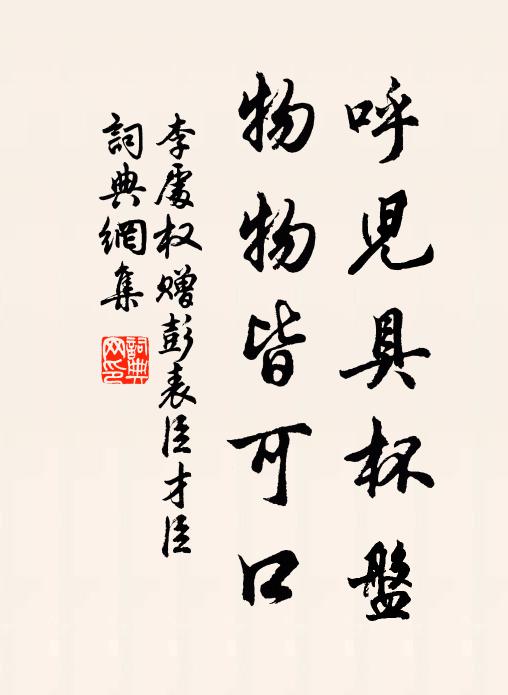 呼児具杯盤
物物皆可口
李處权赠彭表臣才臣
詞典網集
詞典网印